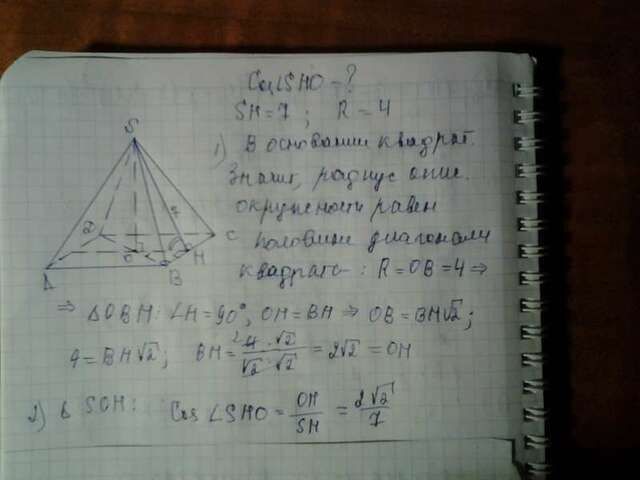 Cos∠SHO-?
SH=7 ; R=4
S
1) В основании квадрат.
Значит, радиус опис.
окружности равен
половине диагонали
квадрата: R=OB=4 ⇒
7
D
C
O
H
A
B
⇒ ΔOBH: ∠H=90°, OH=BH ⇒ OB=BH√2;
4=BH√2; BH= 4·√2 / √2·√2 = 2√2 = OH
2) Δ SOH: Cos∠SHO= OH/SH = 2√2/7